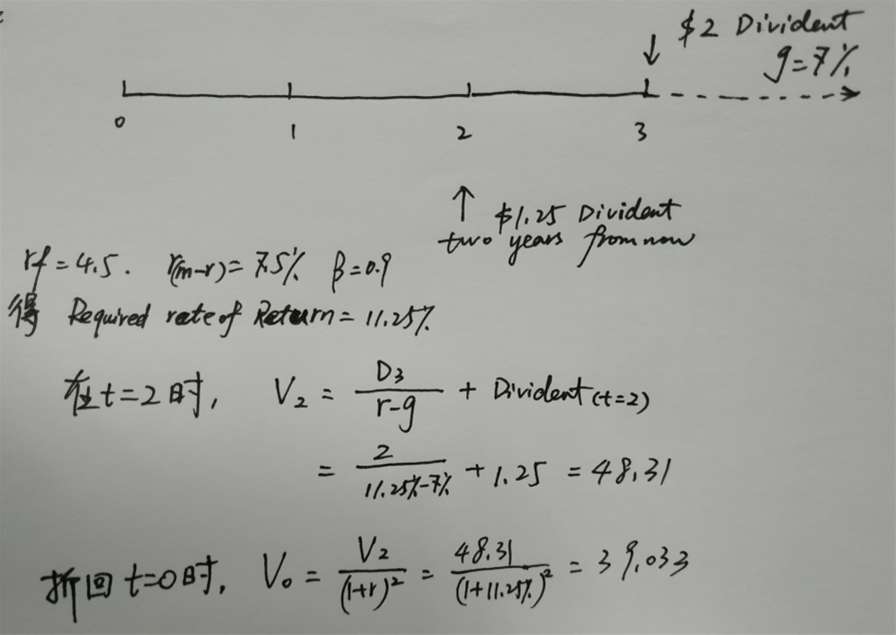 $2 Divident
g=7%
0 1 2 3
$1.25 Divident
two years from now
rf=4.5. r(m-r)=7.5% β=0.9
得 Required rate of Return=11.25%
在t=2时, V₂ = D₃/(r-g) + Divident(t=2)
= 2/(11.25%-7%) + 1.25 = 48.31
折回t=0时, V₀ = V₂/(1+r)² = 48.31/(1+11.25%)² = 39.033